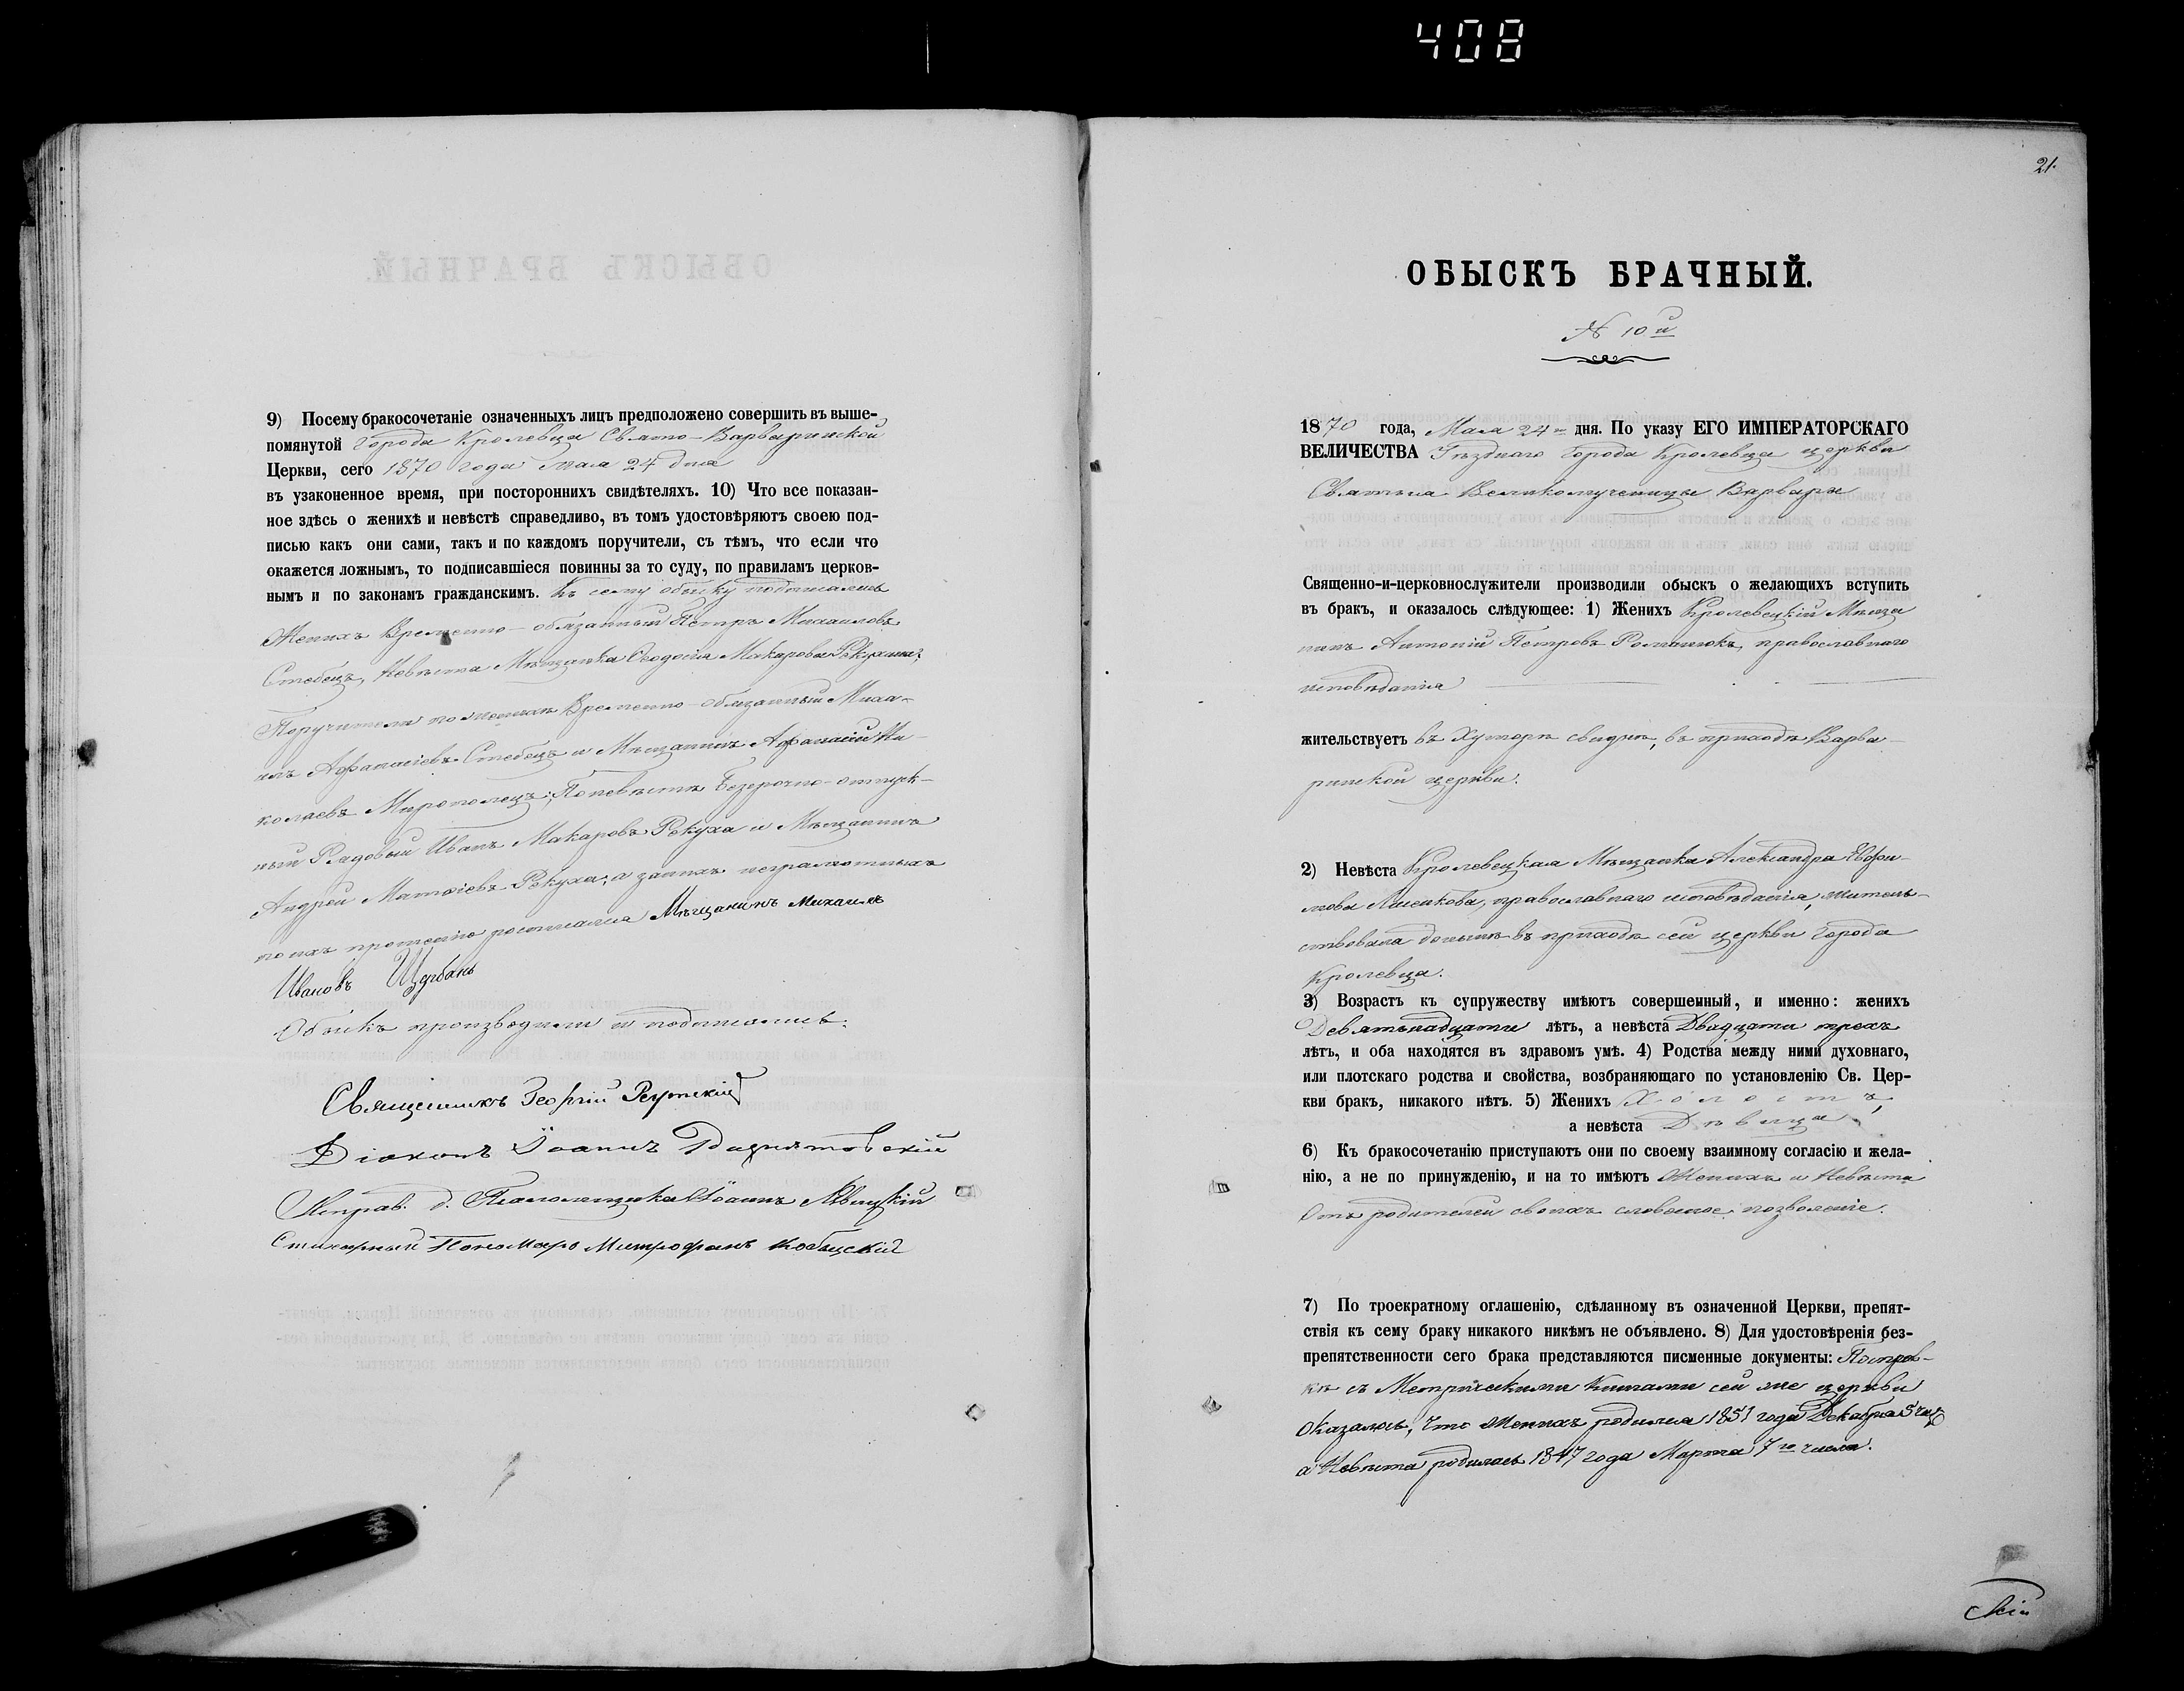 408
9) Посему бракосочетаніе означенныхъ лицъ предположено совершить въ выше-
помянутой Города Кролевца Свято-Варваринской
Церкви, сего 1870 года мая 24 дня
въ узаконенное время, при постороннихъ свидѣтеляхъ. 10) Что все показан-
ное здѣсь о женихѣ и невѣстѣ справедливо, въ томъ удостовѣряютъ своею под-
писью какъ они сами, такъ и по каждомъ поручители, съ тѣмъ, что если что
окажется ложнымъ, то подписавшіеся повинны за то суду, по правиламъ церков-
нымъ и по законамъ гражданскимъ. Къ сему обыску подписались
Женихъ Временно-обязанный Петръ Михаиловъ
Стебецъ, Невѣста Мѣщанка Ѳеодосія Макарова Рекухина;
Поручители по женихѣ Временно-обязанный Миха-
илъ Афанасіевъ Стебецъ и Мѣщанинъ Афанасій Ни-
колаевъ Миропольецъ; По невѣстѣ Безсрочно-отпуск-
ный Рядовый Иванъ Макаровъ Рекуха и Мѣщанинъ
Андрей Матѳіевъ Рекуха; а за нихъ неграмотныхъ
по ихъ прошенію росписался Мѣщанинъ Михаилъ
Ивановъ Щербань
Обыскъ производили и подписались:
Священникъ Георгій
Діаконъ Іоаннъ
Исправ. д. Псаломщика Іоаннъ
Стихарный Пономарь Митрофанъ
21.
ОБЫСКЪ БРАЧНЫЙ.
N 10й
1870 года, Мая 24го дня. По указу ЕГО ИМПЕРАТОРСКАГО
ВЕЛИЧЕСТВА Уѣзднаго Города Кролевца церкви
Святыя Великомученицы Варвары
Священно-и-церковнослужители производили обыскъ о желающихъ вступить
въ бракъ, и оказалось слѣдующее: 1) Женихъ Кролевецкій Мѣща
нинъ Антоній Петровъ Романюкъ, православнаго
исповѣданія
жительствуетъ въ Хуторѣ свиднѣ, въ приходѣ Варва-
ринской церкви.
2) Невѣста Кролевецкая Мѣщанка Александра Евфи-
мова Лисакова, православнаго исповѣданія, житель-
ствовала донынѣ въ приходѣ сей церкви Города
Кролевца.
3) Возрастъ къ супружеству имѣютъ совершенный, и именно: женихъ
Девятьнадцати лѣтъ, а невѣста Двадцати трехъ
лѣтъ, и оба находятся въ здравомъ умѣ. 4) Родства между ними духовнаго,
или плотскаго родства и свойства, возбраняющаго по установленію Св. Цер-
кви бракъ, никакого нѣтъ. 5) Женихъ Холостъ,
а невѣста Дѣвица
6) Къ бракосочетанію приступаютъ они по своему взаимному согласію и жела-
нію, а не по принужденію, и на то имѣютъ Женихъ и Невѣста
Отъ родителей своихъ словесное позволеніе.
7) По троекратному оглашенію, сдѣланному въ означенной Церкви, препят-
ствія къ сему браку никакого никѣмъ не объявлено. 8) Для удостовѣренія без-
препятственности сего брака представляются писменные документы: Посправ-
кѣ съ Метрическими Книгами сей же церкви
Оказалось, Что Женихъ родился 1851 года Декабря 5 чис.
а Невѣста родилась 1847 года Марта 7го числа.